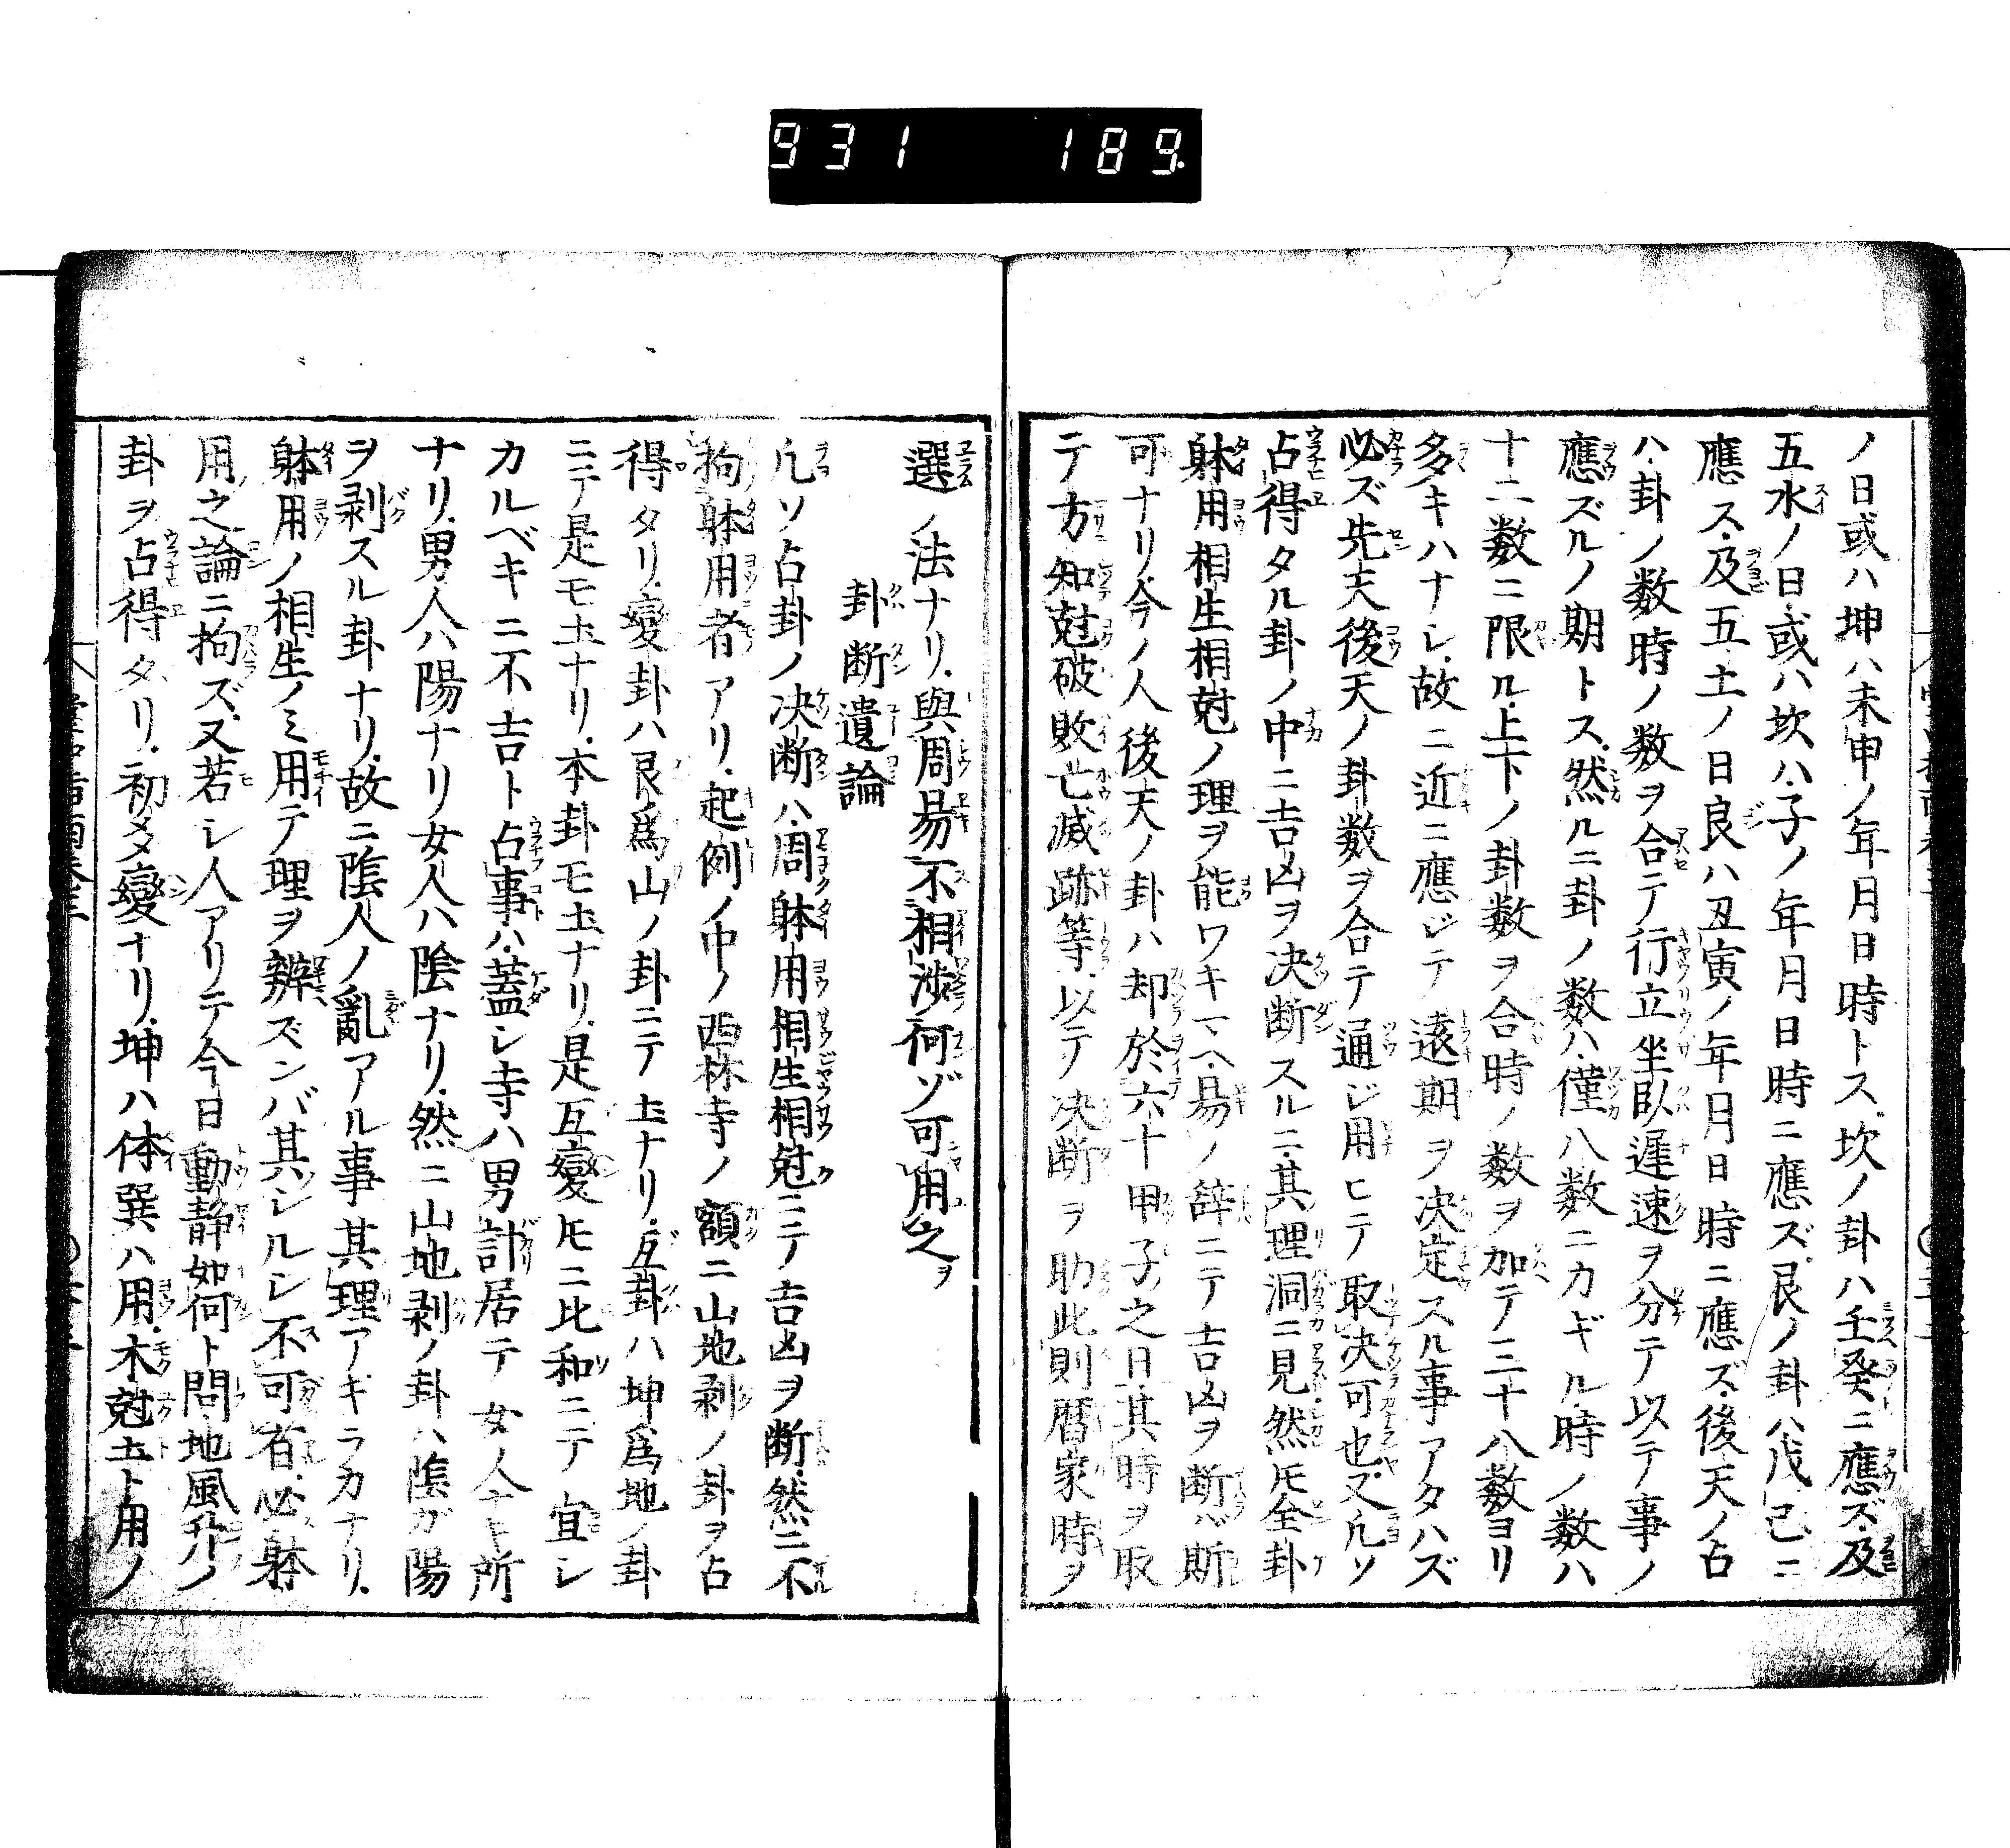 931 189
ノ日或ハ坤ハ未申ノ年月日時トス坎ノ卦ハ壬癸ニ應ズ及
五水ノ日或ハ坎ハ子ノ年月日時ニ應ズ艮ノ卦ハ戊己ニ
應ス及五土ノ日良ハ丑寅ノ年月日時ニ應ズ後天ノ占
ハ卦ノ数時ノ数ヲ合テ行立坐臥遲速ヲ分テ以テ事ノ
應ズルノ期トス然ルニ卦ノ数ハ僅八数ニカギル時ノ数ハ
十二数ニ限ル上下ノ卦数ヲ合時ノ数ヲ加テ二十八数ヨリ
多キハナシ故ニ近ニ應ジテ遠期ヲ決定スル事アタハズ
必ズ先天後天ノ卦数ヲ合テ通ジ用ヒテ取決可也又凡ソ
占得タル卦ノ中ニ吉凶ヲ决断スルニ其理洞ニ見然𪜈全卦
躰用相生相尅ノ理ヲ能ワキマヘ易ノ辞ニテ吉凶ヲ断バ斯
可ナリ今ノ人後天ノ卦ハ却於六十甲子之日其時ヲ取
テ方知尅破敗亡滅跡等以テ决断ヲ助此則暦家時ヲ
選ノ法ナリ與周易不相渉何ゾ可用之ヲ
卦断遺論
凡ソ占卦ノ决断ハ周躰用相生相尅ニテ吉凶ヲ断然ニ不
拘躰用者アリ起例ノ中ノ西林寺ノ額ニ山地剥ノ卦ヲ占
得タリ變卦ハ艮爲山ノ卦ニテ土ナリ互卦ハ坤爲地ノ卦
ニテ是モ土ナリ本卦モ土ナリ是互變𪜈ニ比和ニテ宜シ
カルベキニ不吉ト占事ハ蓋シ寺ハ男計居テ女人ナキ所
ナリ男人ハ陽ナリ女人ハ陰ナリ然ニ山地剥ノ卦ハ陰ガ陽
ヲ剥スル卦ナリ故ニ陰人ノ亂アル事其理アキラカナリ
躰用ノ相生ノミ用テ理ヲ辨ズンバ其シルシ不可有必躰
用之論ニ拘ズ又若シ人アリテ今日動静如何ト問地風升ノ
卦ヲ占得タリ初爻變ナリ坤ハ体巽ハ用木尅土ト用ノ